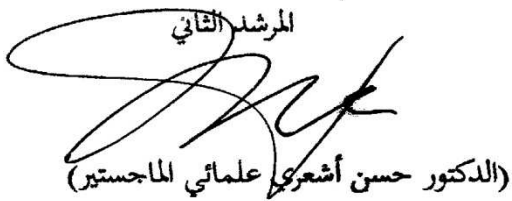 المرشد الثاني
(الدكتور حسن أشعري علمائي الماجستير)